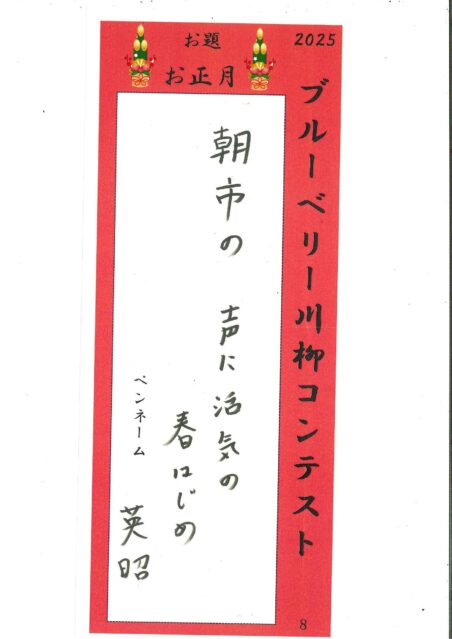 2025
ブルーベリー川柳コンテスト
お題
お正月
朝市の 声に活気の
春はじめ
ペンネーム 英昭
8